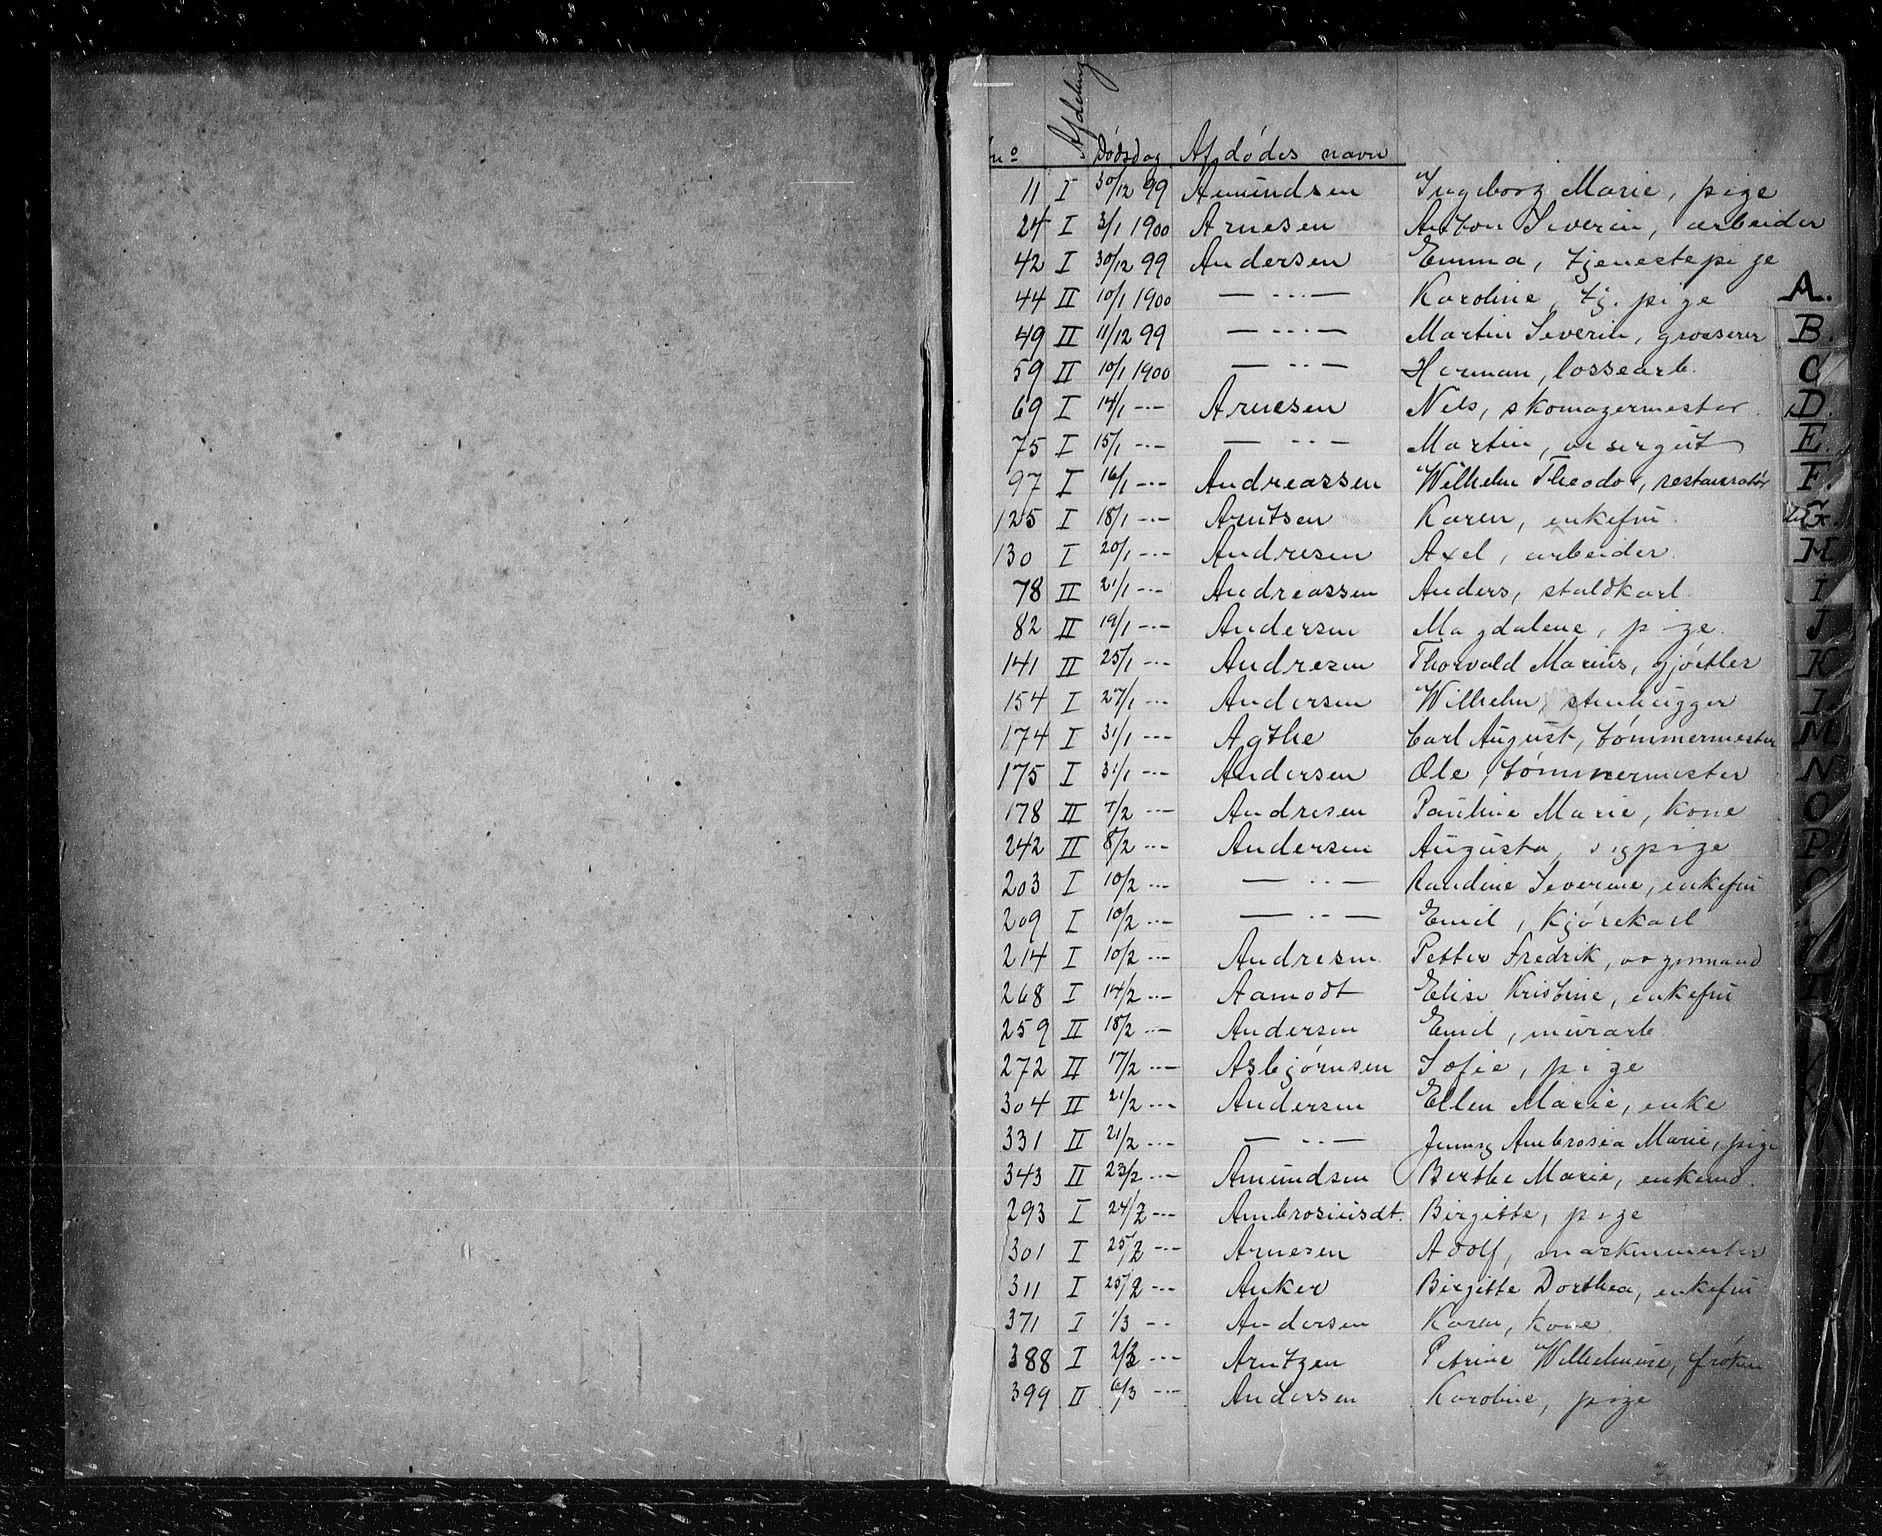 Afdeling
no Dødsdag Afdødes navn
11 I 30/12 99 Amundsen Ingeborg Marie, pige
24 I 3/1 1900 Arnesen Anton Severin, arbeider
42 I 30/12 99 Andersen Emma, tjenestepige
44 II 10/1 1900 — … — Karoline, tj. pige
49 II 11/12 99 — … — Martin Severin, grosserer
59 II 10/1 1900 — … — Herman, lossearb.
69 I 14/1 -·- Arnesen Nils, skomagermester
75 I 15/1 -·- — … — Martin, visergut
97 I 16/1 -·- Andreassen Wilhelm Theodor, restauratør
125 I 18/1 -·- Arntsen Karen, enkefru
130 I 20/1 -·- Andresen Axel, arbeider
78 II 21/1 -·- Andreassen Anders, staldkarl
82 II 19/1 -·- Andersen Magdalene, pige
141 II 25/1 -·- Andresen Thorvald Marius, gjørtler
154 I 27/1 -·- Andersen Wilhelm, stenhugger
174 I 31/1 -·- Agthe Carl August, tømmermester
175 I 31/1 -·- Andersen Ole, tømmermester
178 II /2 -·- Andresen Pauline Marie, kone
242 II 8/2 -·- Andersen Augusta, sypige
203 I 10/2 -·- — ·· — Randine Severine, enkefru
209 I 10/2 -·- — ·· — Emil, kjørekarl
214 I 10/2 -·- Andresen Petter Fredrik, vognmand
268 I 14/2 -·- Aamodt Elise Kristine, enkefru
259 II 18/2 -·- Andersen Emil, murarb.
272 II 17/2 -·- Asbjørnsen Sofie, pige
304 II 21/2 -·- Andersen Ellen Marie, enke
331 II 21/2 -·- — ·· — Jenny Ambrosia Marie, pige
343 II 23/2 -·- Amundsen Berthe Marie, enkemd.
293 I 24/2 -·- Ambrosiusdt. Birgitte, pige
301 I 25/2 -·- Arnesen Adolf, maskinmester
311 I 25/2 -·- Anker Birgitte Dorthea, enkefru
371 I 1/3 -·- Andersen Karen, kone
388 I 2/3 -·- Arntzen Petrine Wilhelmine, frøken
399 II 6/3 -·- Andersen Karoline, pige
A.
B.
C
D.
E.
F.
G.
H
I
J
K
L
M
N
O
P.